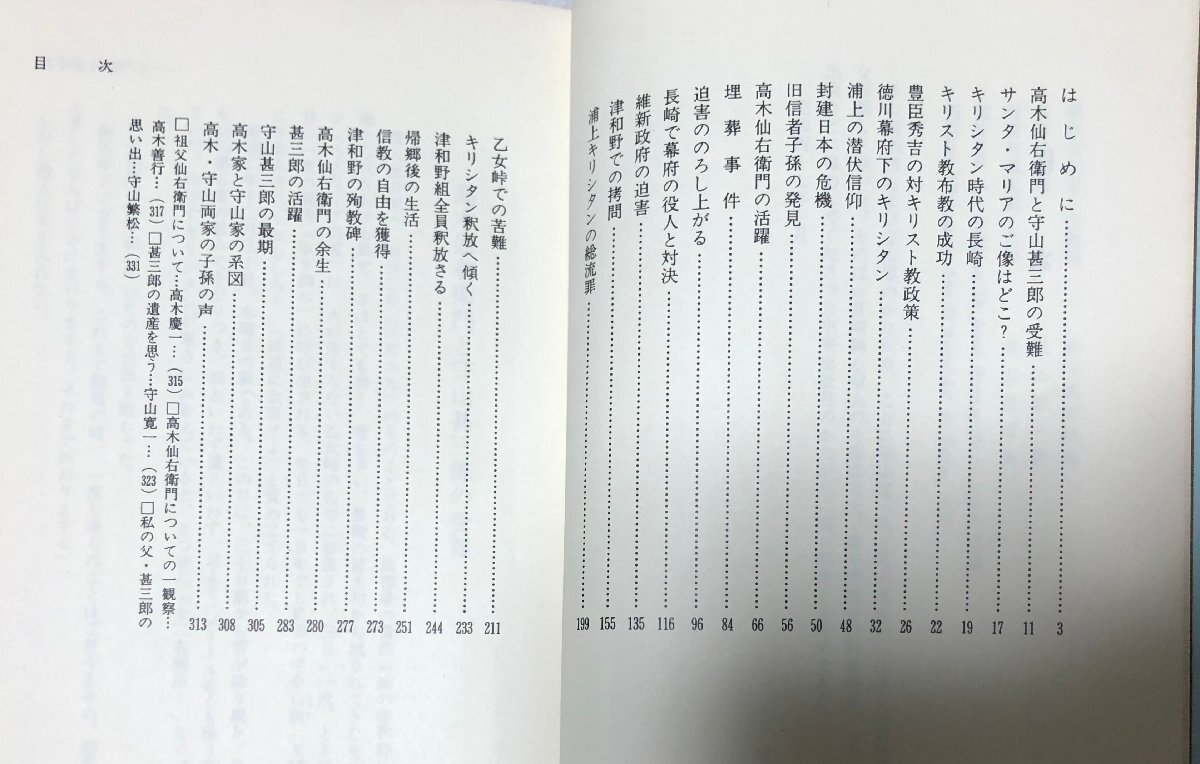 はじめに……………3
高木仙右衛門と守山甚三郎の受難……………11
サンタ・マリアのご像はどこ?……………17
キリシタン時代の長崎……………19
キリスト教布教の成功……………22
豊臣秀吉の対キリスト教政策……………26
徳川幕府下のキリシタン……………32
浦上の潜伏信仰……………48
封建日本の危機……………50
旧信者子孫の発見……………56
高木仙右衛門の活躍……………66
埋葬事件……………84
迫害ののろし上がる……………96
長崎で幕府の役人と対決……………116
維新政府の迫害……………135
津和野での拷問……………155
浦上キリシタンの総流罪……………199
乙女峠での苦難……………211
キリシタン釈放へ傾く……………233
津和野組全員釈放さる……………244
帰郷後の生活……………251
信教の自由を獲得……………273
津和野の殉教碑……………277
高木仙右衛門の余生……………280
甚三郎の活躍……………283
守山甚三郎の最期……………305
高木家と守山家の系図……………308
高木・守山両家の子孫の声……………313
□祖父仙右衛門について…高木慶一…(315)□高木仙右衛門についての一観察…
高木善行…(317)□甚三郎の遺産を思う…守山寛一…(323)□私の父・甚三郎の
思い出…守山繁松…(331)
目 次